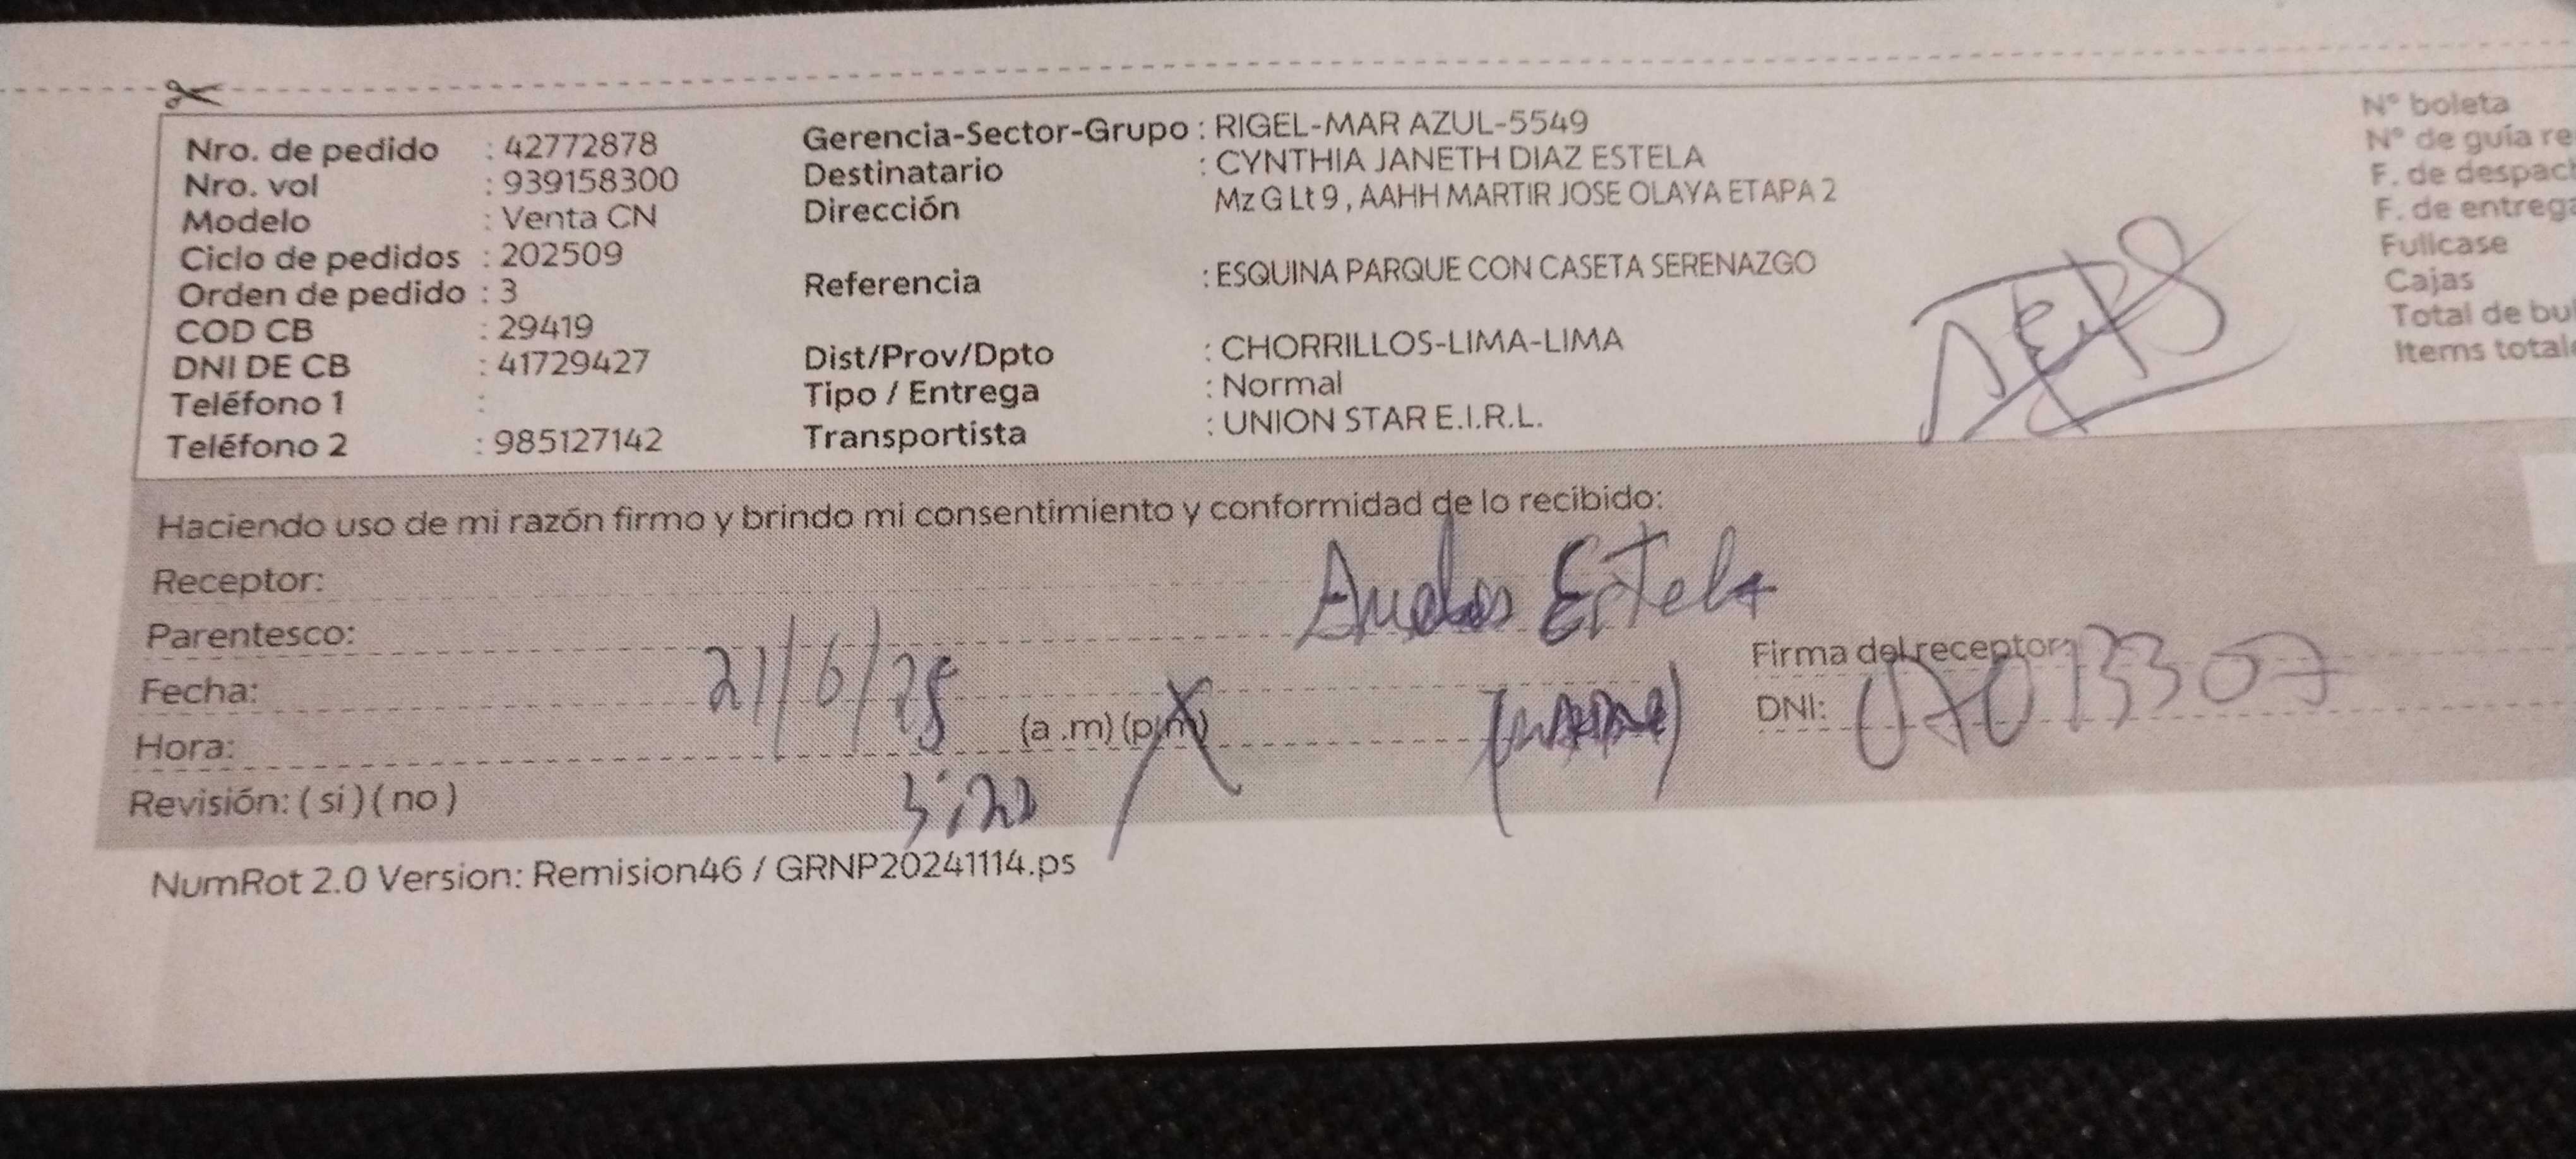 Nro. de pedido : 42772878
Nro. vol : 939158300
Modelo : Venta CN
Ciclo de pedidos : 202509
Orden de pedido : 3
COD CB : 29419
DNI DE CB : 41729427
Teléfono 1 :
Teléfono 2 : 985127142
Gerencia-Sector-Grupo : RIGEL-MAR AZUL-5549
Destinatario : CYNTHIA JANETH DIAZ ESTELA
Dirección Mz G Lt 9 , AAHH MARTIR JOSE OLAYA ETAPA 2
Referencia : ESQUINA PARQUE CON CASETA SERENAZGO
Dist/Prov/Dpto : CHORRILLOS-LIMA-LIMA
Tipo / Entrega : Normal
Transportista : UNION STAR E.I.R.L.
N° boleta
N° de guía re
F. de despach
F. de entrega
Fullcase
Cajas
Total de bul
Items totale
Haciendo uso de mi razón firmo y brindo mi consentimiento y conformidad de lo recibido:
Receptor: Estela
Parentesco:
Fecha: 21/6/25
Hora: (a .m) (p.m)
3:20
Revisión: ( si ) ( no )
Firma del receptor:
DNI:
NumRot 2.0 Version: Remision46 / GRNP20241114.ps